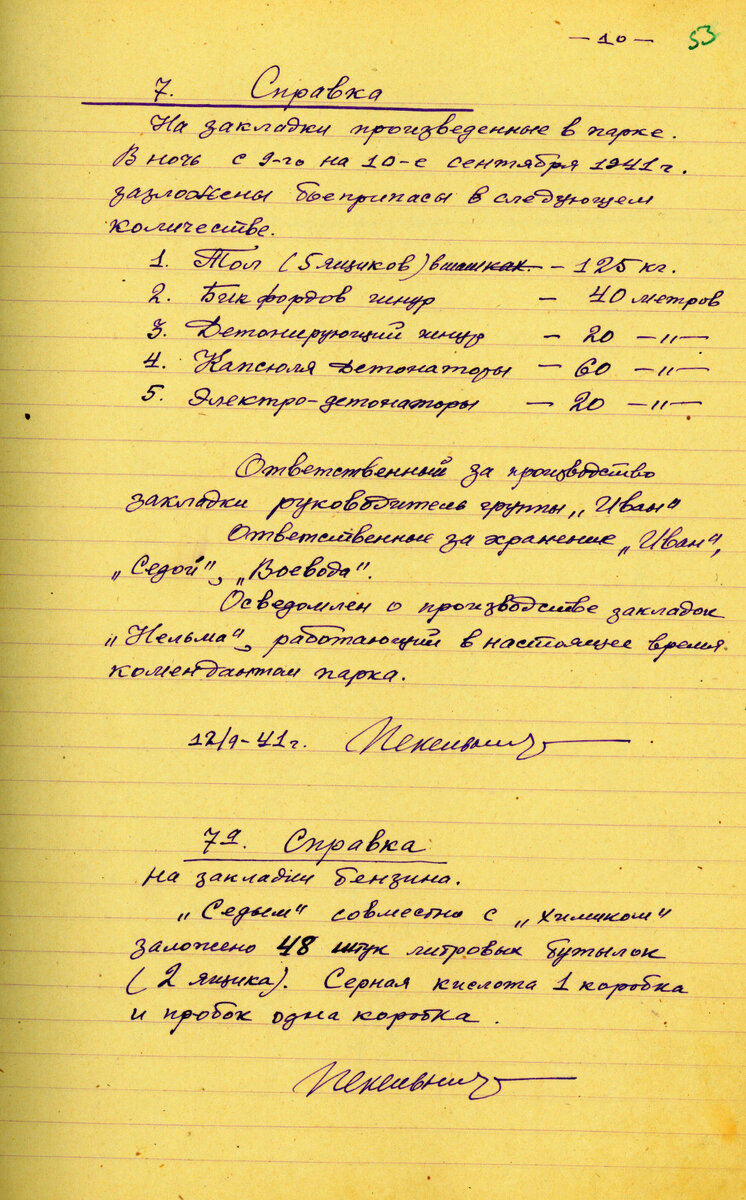 — 10 — 53
7. Справка
На закладки произведенные в парке.
В ночь с 9-го на 10-е сентября 1941 г.
зазложены боеприпасы в следующем
количестве.
1. Тол (5 ящиков) в шашках. — 125 кг.
2. Бикфордов шнур — 40 метров
3. Детонирующий шнур — 20 —"—
4. Капсюля детонаторы — 60 —"—
5. Электро-детонаторы — 20 —"—
Ответственный за производство
закладки руководитель группы „Иван"
Ответственные за хранение „Иван",
„Седой", „Воевода".
Осведомлен о производстве закладок
„Нельма", работающий в настоящее время
комендантом парка.
12/9-41 г.
7а. Справка
на закладки бензина.
„Седым" совместно с „Химиком"
заложено 48 штук литровых бутылок
(2 ящика). Серная кислота 1 коробка
и пробок одна коробка.